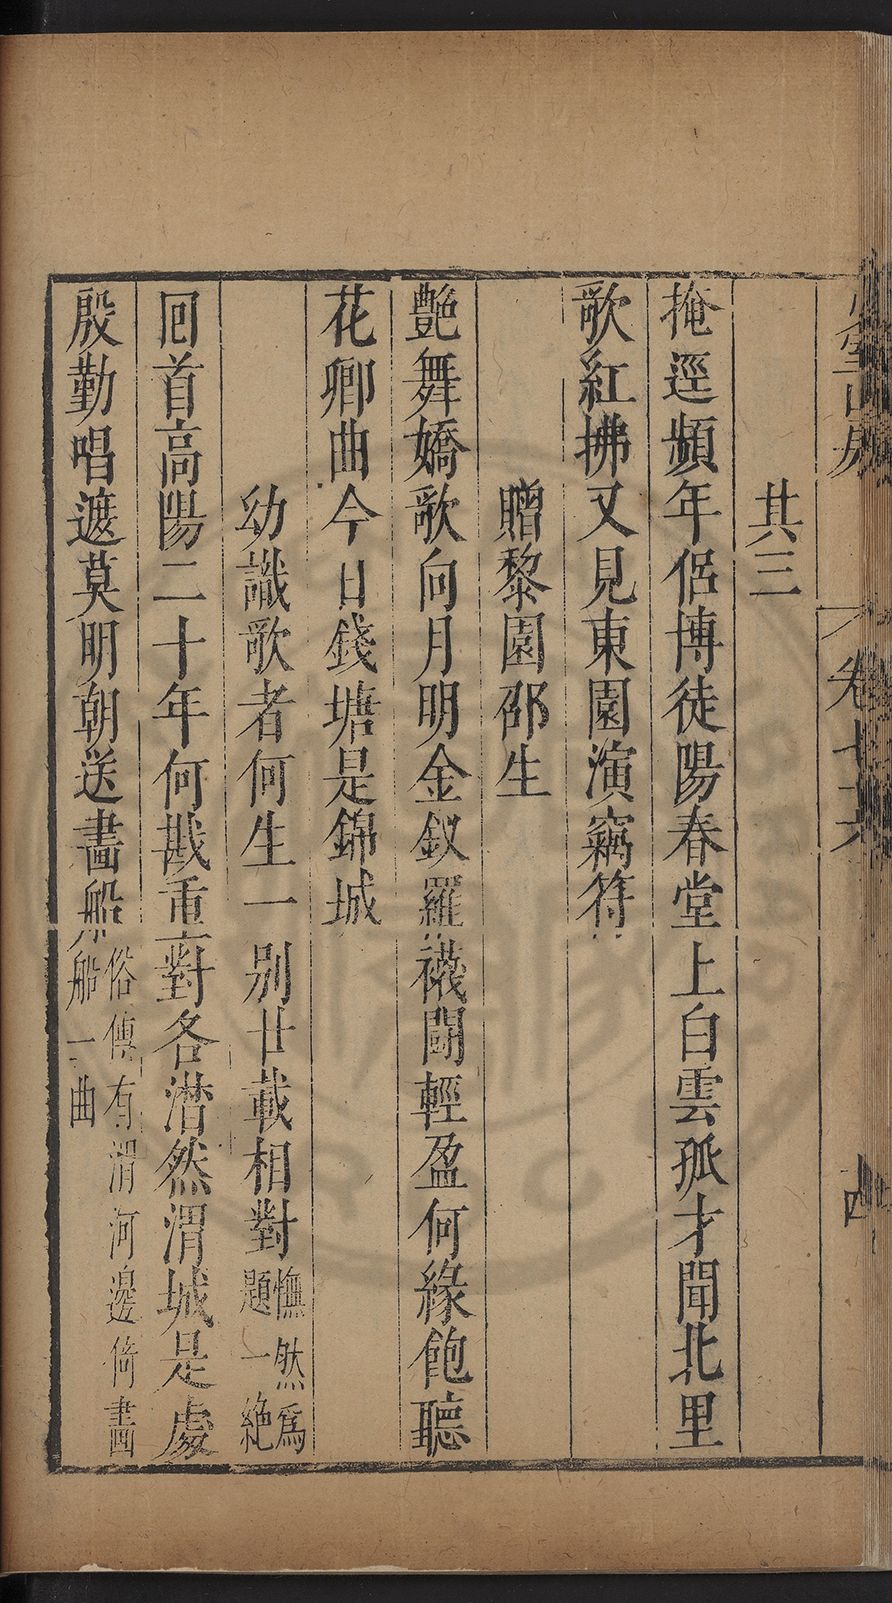 其三
掩逕頻年侶博徒陽春堂上白雲孤才聞北里
歌紅拂又見東園演竊符
贈黎園邵生
艷舞嬌歌向月明金釵羅襪鬪輕盈何緣飽聽
花卿曲今日錢塘是錦城
幼識歌者何生一別廿載相對憮然爲題一絶
回首高陽二十年何戡重對各潸然渭城是處
殷勤唱遮莫明朝送畵船俗傳有渭河邊倚畵船一曲
卷七十六
四